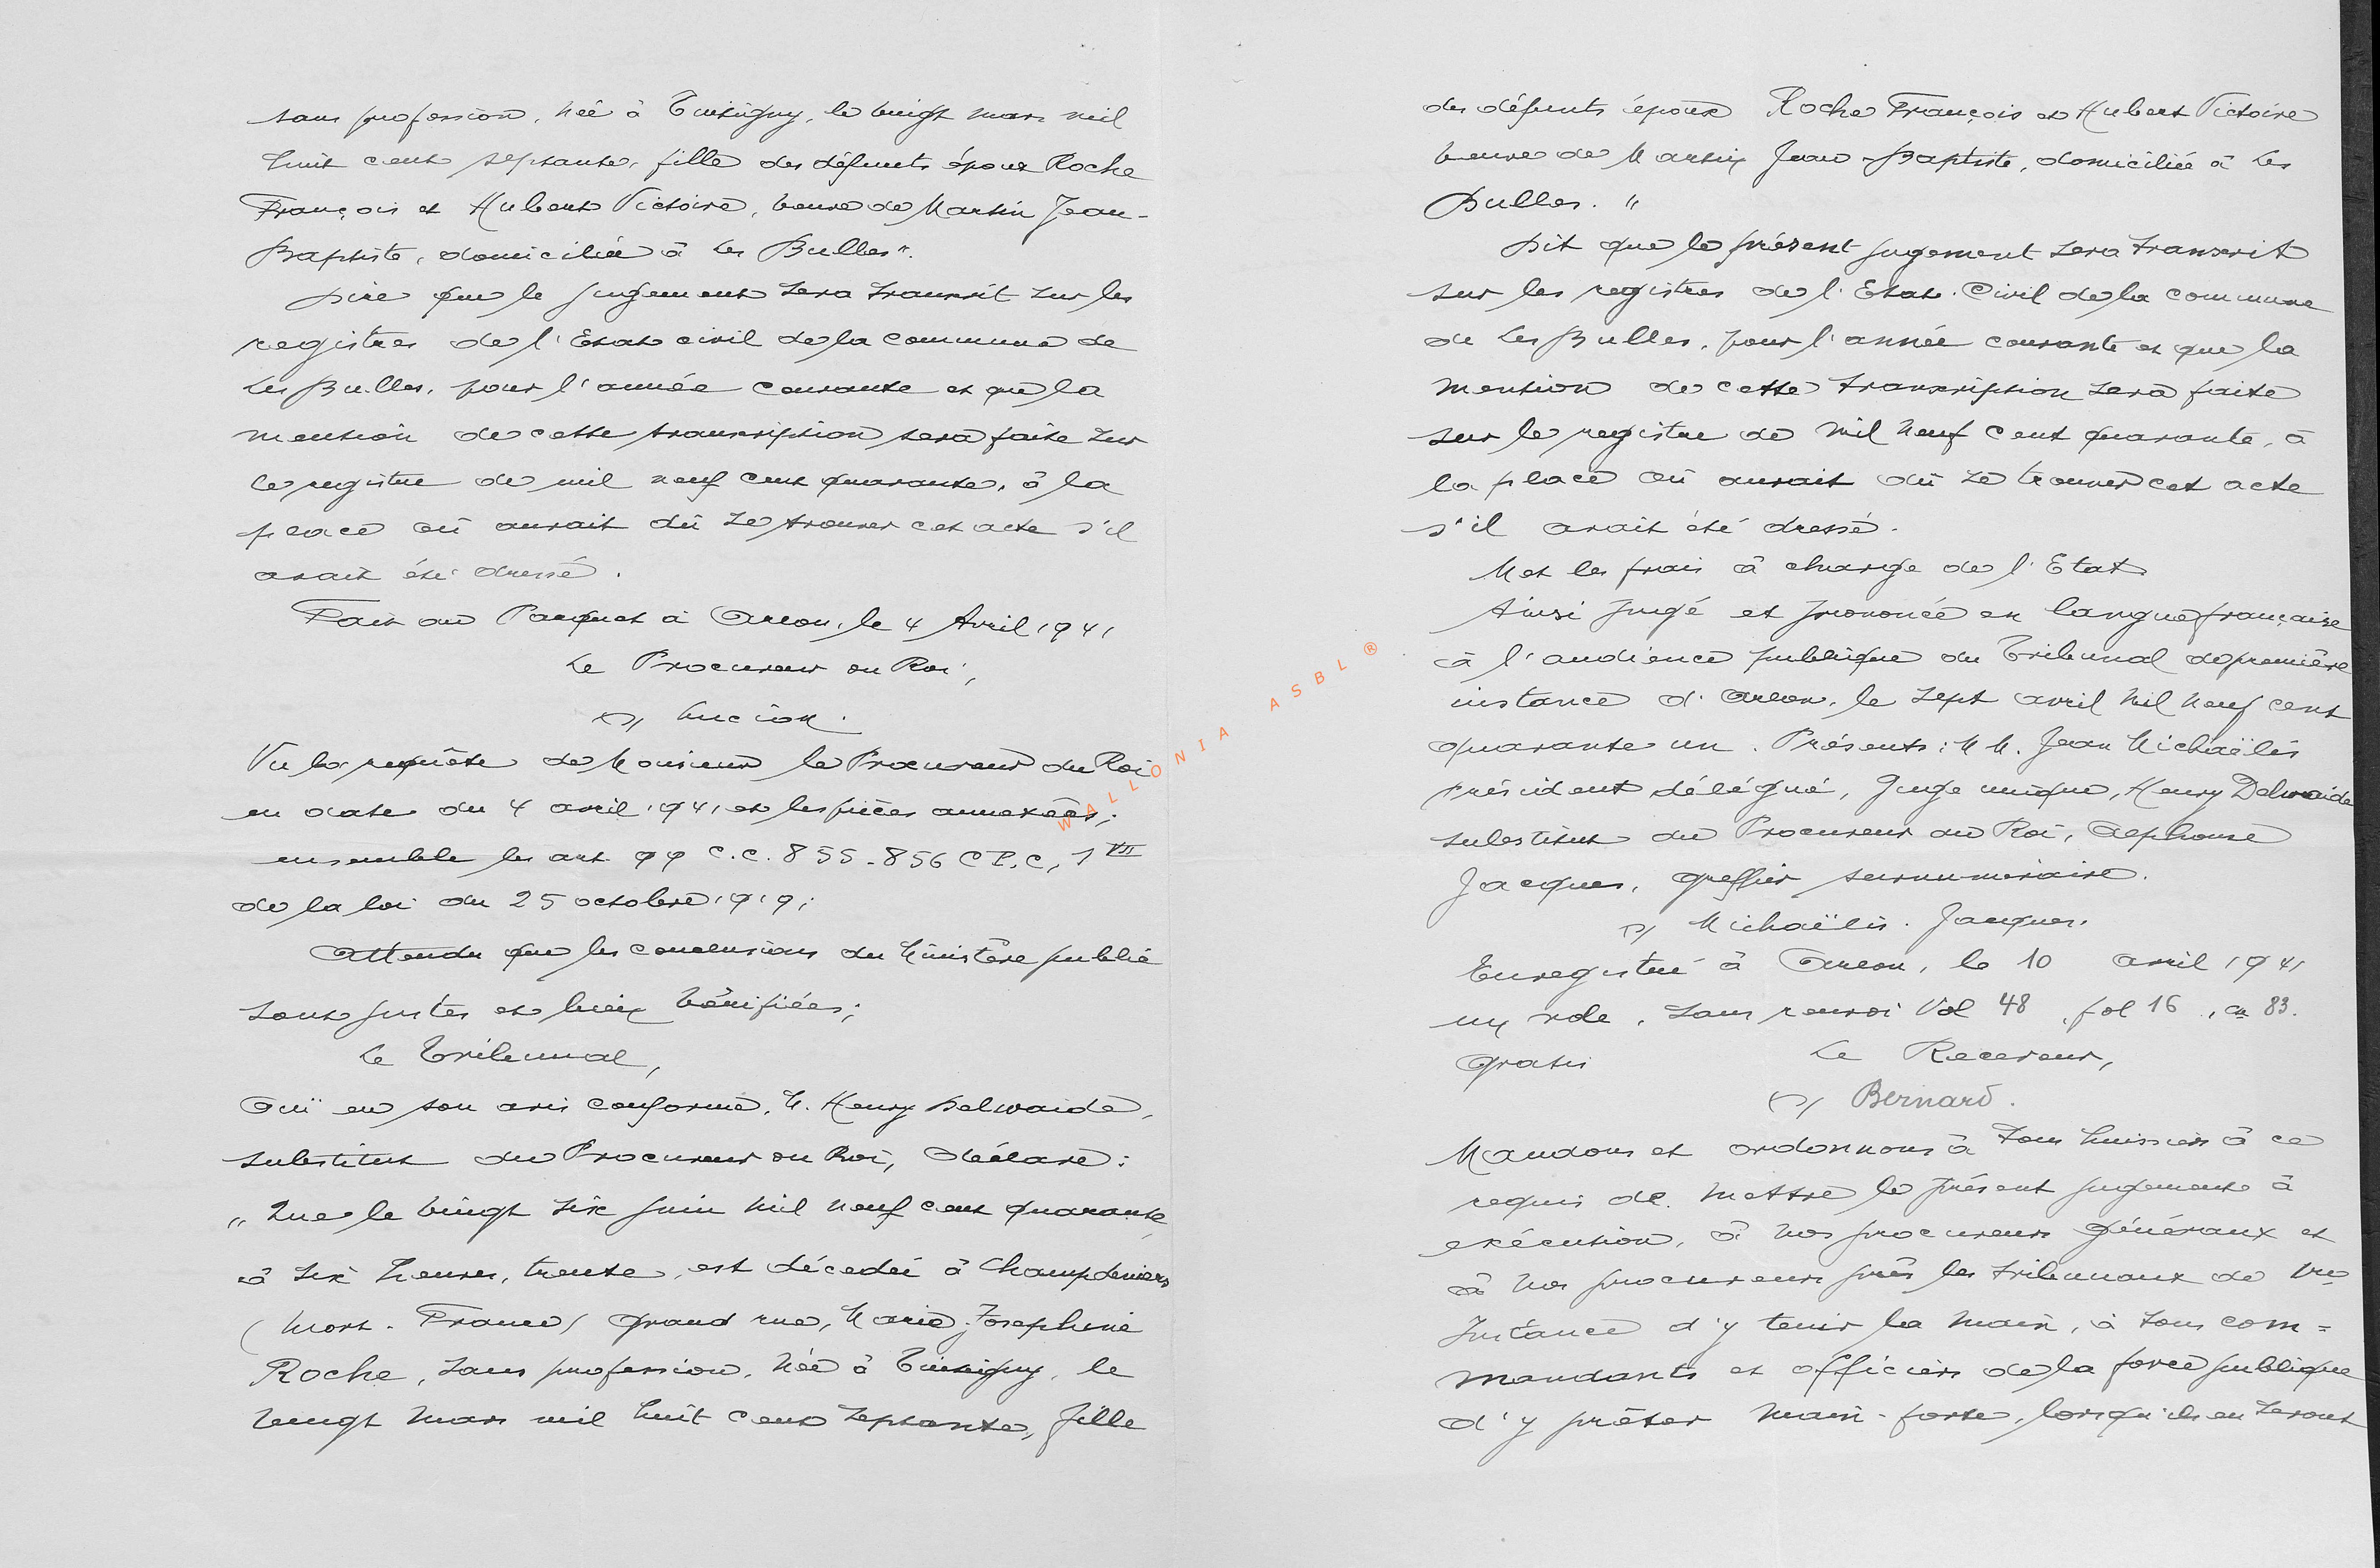 sans profession, née à Tintigny, le vingt mars mil
huit cent septante, fille des défunts époux Roche
François et Hubert Victoire, veuve de Martin Jean-
Baptiste, domiciliée à Les Bulles".
Dire que le jugement sera transcrit sur les
registres de l'Etat civil de la commune de
Les Bulles, pour l'année courante et que la
mention de cette transcription sera faite sur
le registre de mil neuf cent quarante, à la
place où aurait dû se trouver cet acte s'il
avait été dressé.
Fait au Parquet à Arlon, le 4 Avril 1941
Le Procureur du Roi,
(s) Lucion.
Vu la requête de Monsieur le Procureur du Roi
en date du 4 avril 1941 et les pièces annexées;
ensemble les art. 99 C.C. 855-856 C.P.C, 1 VII
de la loi du 25 octobre 1919;
Attendu que les conclusions du Ministère public
sont justes et bien vérifiées;
Le Tribunal,
Ouï en son avis conforme, M. Henry Delwaide,
substitut du Procureur du Roi, déclare:
" Que le vingt six juin mil neuf cent quarante,
à six heures, trente, est décédée à Champdeniers
( Niort - France) grand rue, Marie-Josephine
Roche, sans profession, née à Tintigny, le
vingt mars mil huit cent septante, fille
des défunts époux Roche François et Hubert Victoire
veuve de Martin Jean-Baptiste, domiciliée à Les
Bulles. "
Dit que le présent jugement sera transcrit
sur les registres de l'Etat-Civil de la commune
de Les Bulles, pour l'année courante et que la
mention de cette transcription sera faite
sur le registre de mil neuf cent quarante, à
la place où aurait dû se trouver cet acte
s'il avait été dressé.
Met les frais à charge de l'Etat
Ainsi jugé et prononcé en langue française
à l'audience publique du Tribunal de première
instance d'Arlon, le sept avril mil neuf cent
quarante un. Présents: M M. Jean Michaëlis
président délégué, Juge unique, Henry Delwaide
substitut du Procureur du Roi, Alphonse
Jacques, greffier surnuméraire.
(s) Michaëlis. Jacques.
Enregistré à Arlon, le 10 avril 1941
un rôle, sans renvoi Vol 48, fol 16, ca 83.
Gratis Le Receveur,
(s) Bernard.
Mandons et ordonnons à tous huissiers à ce
requis de mettre le présent jugement à
exécution, à nos procureurs généraux et
à nos procureurs près les tribunaux de 1re
Instance d'y tenir la main, à tous com=
mandants et officiers de la force publique
d'y prêter main-forte, lorsqu'ils en seront
WALLONIA ASBL ®